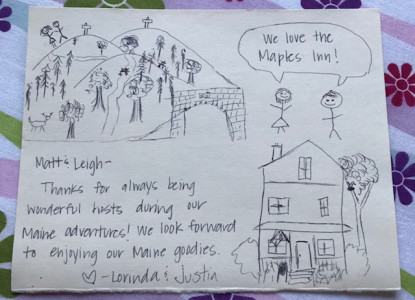 We love the
Maples Inn!
Matt & Leigh-
Thanks for always being
wonderful hosts during our
Maine adventures! We look forward
to enjoying our Maine goodies.
♡-Lorinda & Justin